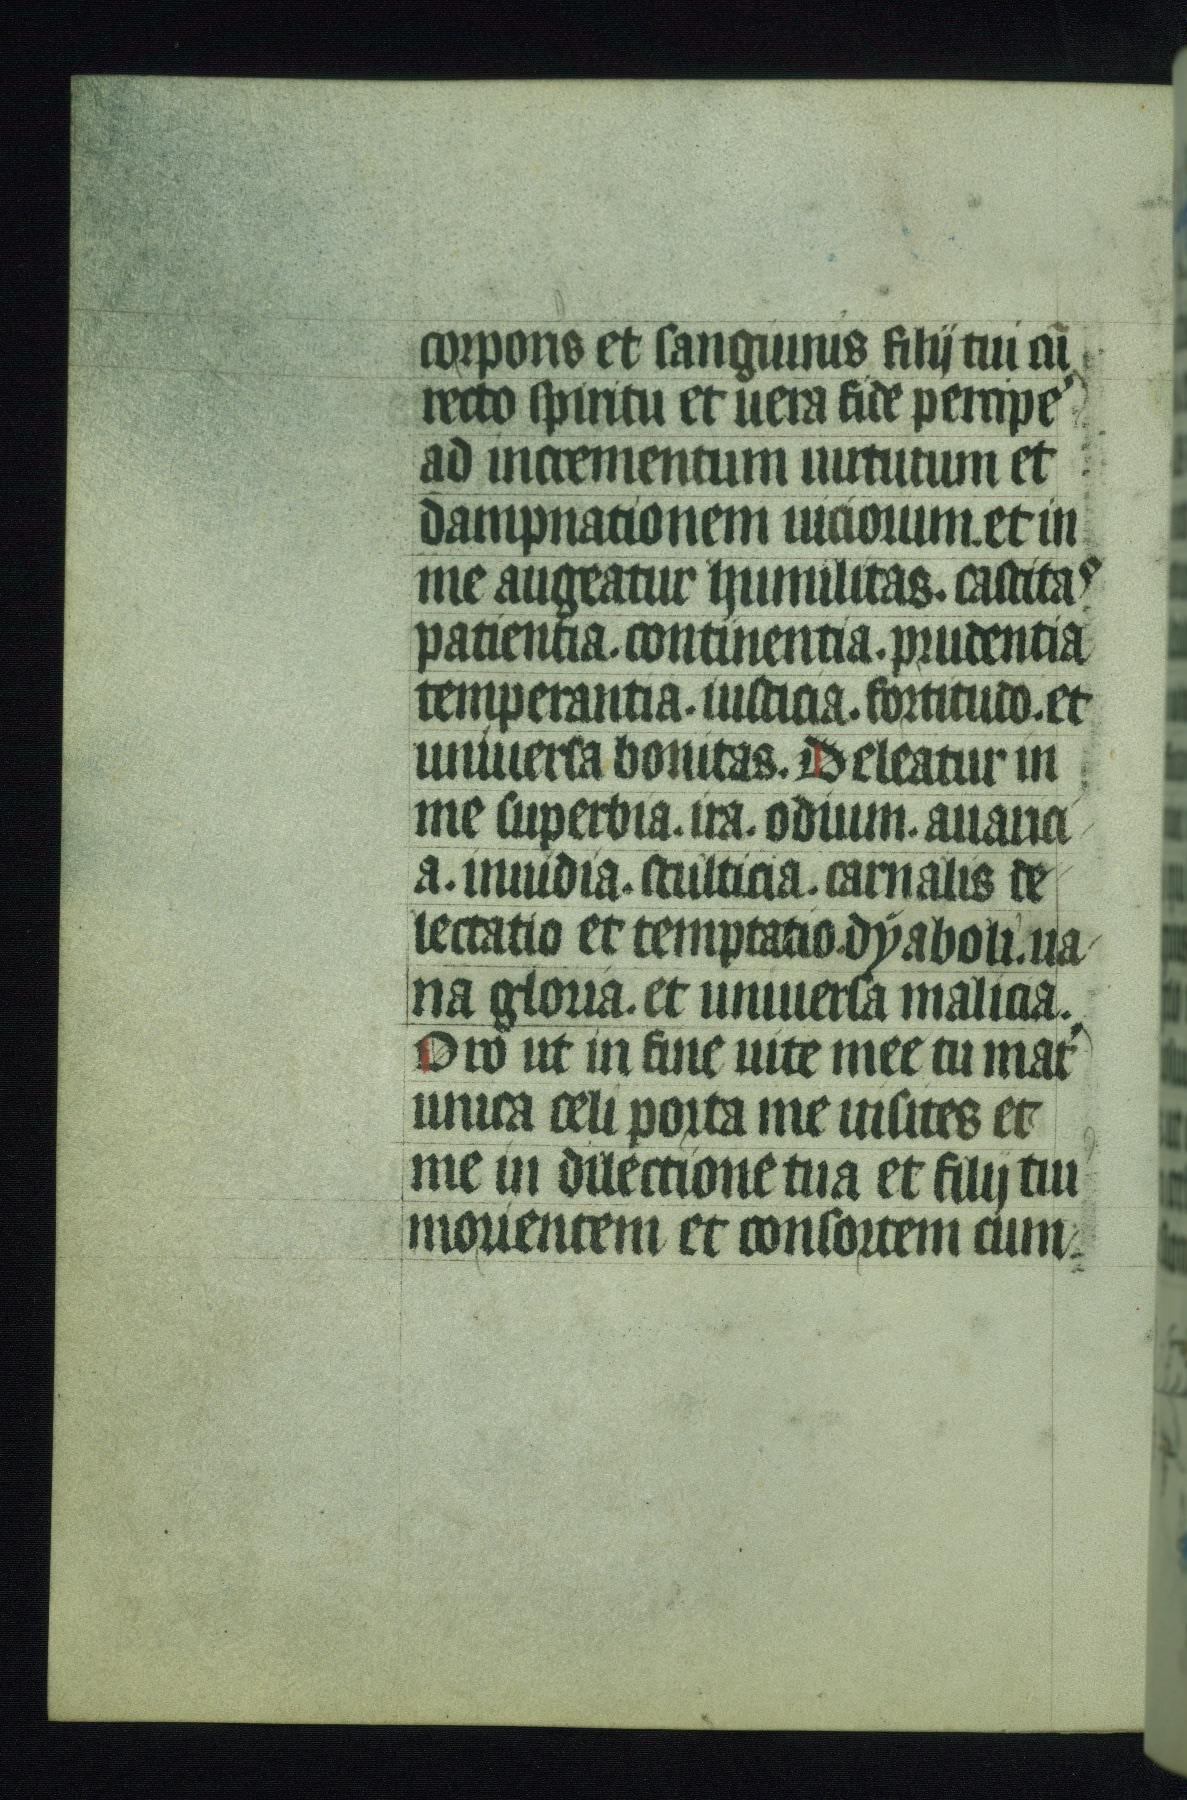 corporis et sanguinis filij tui cū
recto spiritu et uera fide percipe᾿
ad incrementum uirtutum et
dampnationem uiciorum. et in
me augeatur humilitas. castitas
patientia. continentia. prudentia
temperantia. iusticia. fortitudo. et
uniuersa bonitas. Deleatur in
me superbia. ira. odium. auarici
a. inuidia. stulticia. carnalis de
lectatio et temptatio. dyaboli. ua
na gloria. et uniuersa malicia.
Oro ut in fine uite mee tu mat᾿
unica celi porta me uisites et
me in dilectione tua et filij tui
morientem et consortem cum